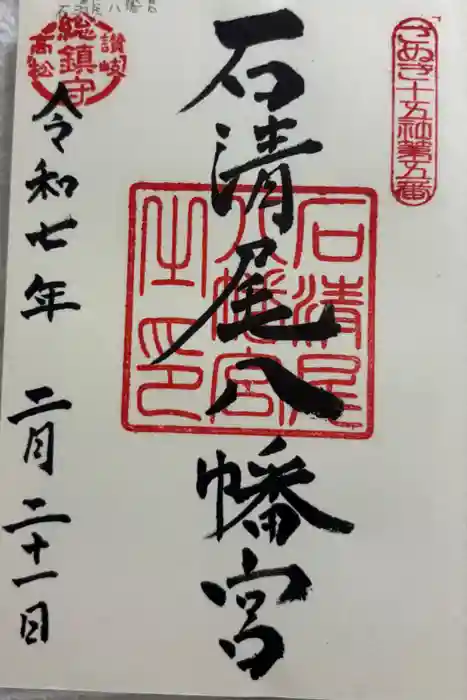 さぬき十五社第五番
石清尾八幡宮
石清尾八幡宮之印
讃岐
総鎮守
高松
令和七年 二月二十一日
石清尾八幡宮